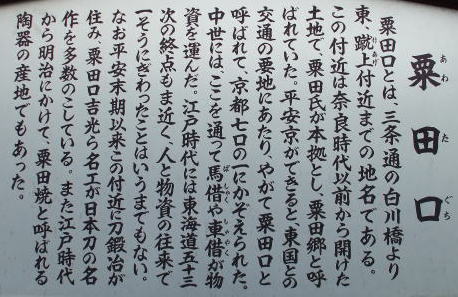 粟田口
あわたぐち
粟田口とは、三条通の白川橋より
東、蹴上付近までの地名である。
けあげ
この付近は奈良時代以前から開けた
土地で、粟田氏が本拠とし、粟田郷と呼
ばれていた。平安京ができると、東国との
交通の要地にあたり、やがて粟田口と
呼ばれて、京都七口の一にかぞえられた。
中世には、ここを通って馬借や車借が物
ばしゃく
しゃしゃく
資を運んだ。江戸時代には東海道五十三
次の終点もま近く、人と物資の往来で
一そうにぎわったことはいうまでもない。
なお平安末期以来この付近に刀鍛冶が
住み、粟田口吉光ら名工が日本刀の名
作を多数のこしている。また江戸時代
から明治にかけて、粟田焼と呼ばれる
陶器の産地でもあった。